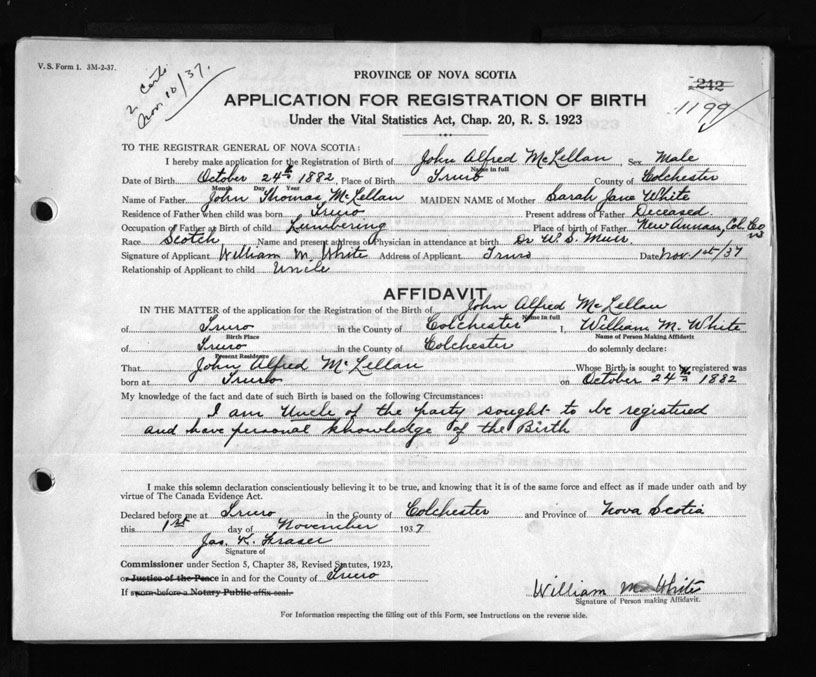 V. S. Form 1. 3M-2-37.
2 Certs
Nov 10/37.
PROVINCE OF NOVA SCOTIA
212
1199
APPLICATION FOR REGISTRATION OF BIRTH
Under the Vital Statistics Act, Chap. 20, R. S. 1923
TO THE REGISTRAR GENERAL OF NOVA SCOTIA:
I hereby make application for the Registration of Birth of John Alfred McLellan, Sex Male
Name in full
Date of Birth October 24th 1882, Place of Birth Truro County of Colchester
Month Day Year
Name of Father John Thomas McLellan MAIDEN NAME of Mother Sarah Jane White
Residence of Father when child was born Truro Present address of Father Deceased.
Occupation of Father at Birth of child Lumbering Place of birth of Father New Annan, Col. Co NS
Race Scotch Name and present address of Physician in attendance at birth Dr W. S. Muir
Signature of Applicant William M. White Address of Applicant Truro Date Nov. 1st/37
Relationship of Applicant to child Uncle
AFFIDAVIT
IN THE MATTER of the application for the Registration of the Birth of John Alfred McLellan
Name in full
of Truro in the County of Colchester I, William M. White
Birth Place Name of Person Making Affidavit
of Truro in the County of Colchester do solemnly declare:
Present Residence
That John Alfred McLellan Whose Birth is sought to be registered was
born at Truro on October 24th 1882
My knowledge of the fact and date of such Birth is based on the following Circumstances:
I am Uncle of the party sought to be registered
and have personal knowledge of the Birth
I make this solemn declaration conscientiously believing it to be true, and knowing that it is of the same force and effect as if made under oath and by
virtue of The Canada Evidence Act.
Declared before me at Truro in the County of Colchester and Province of Nova Scotia
this 1st day of November 1937
Jas. K. Fraser
Signature of
Commissioner under Section 5, Chapter 38, Revised Statutes, 1923,
or Justice of the Peace in and for the County of Truro
If sworn before a Notary Public affix seal.
William M. White
Signature of Person making Affidavit.
For Information respecting the filling out of this Form, see Instructions on the reverse side.